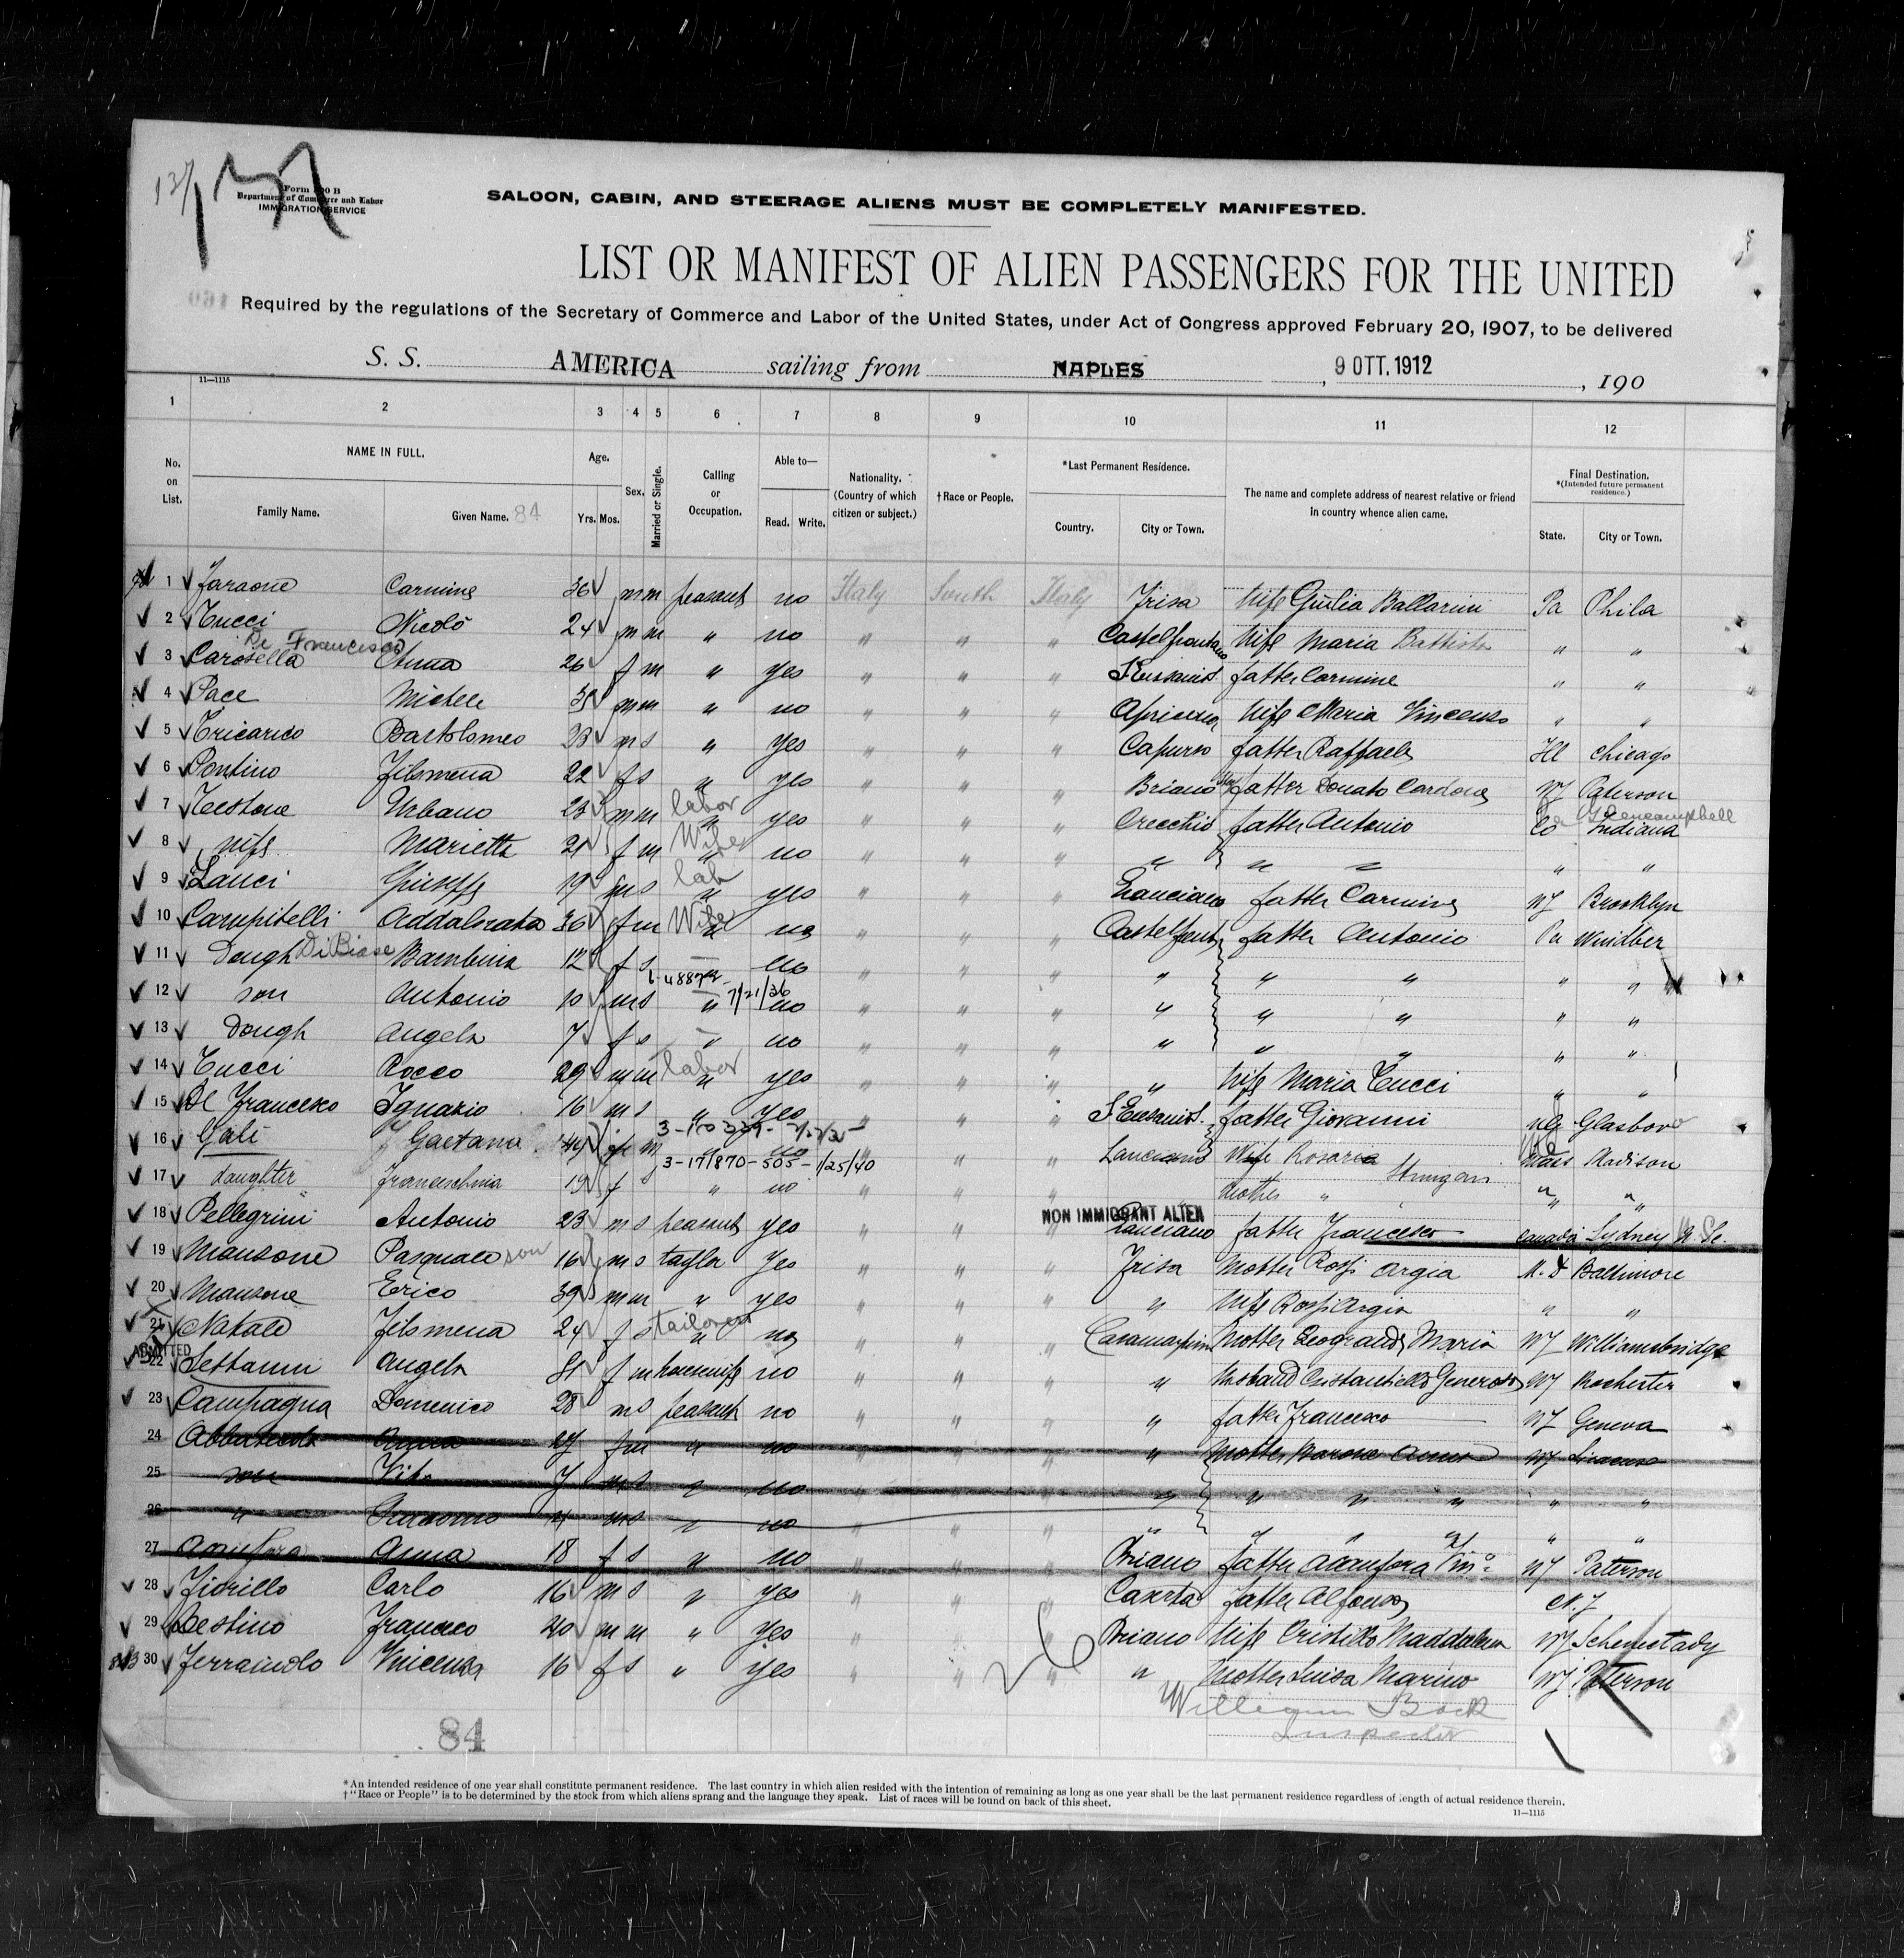 137
Form 500 B
Department of Commerce and Labor
IMMIGRATION SERVICE
SALOON, CABIN, AND STEERAGE ALIENS MUST BE COMPLETELY MANIFESTED.
LIST OR MANIFEST OF ALIEN PASSENGERS FOR THE UNITED
Required by the regulations of the Secretary of Commerce and Labor of the United States, under Act of Congress approved February 20, 1907, to be delivered
S. S. AMERICA sailing from NAPLES , 9 OTT. 1912 , 190
11—1115
1 2 3 4 5 6 7 8 9 10 11 12
No. on List. NAME IN FULL. Family Name. Given Name. 84 Age. Yrs. Mos. Sex. Married or Single. Calling or Occupation. Able to— Read. Write. Nationality. (Country of which citizen or subject.) †Race or People. *Last Permanent Residence. Country. City or Town. The name and complete address of nearest relative or friend in country whence alien came. Final Destination. *(Intended future permanent residence.) State. City or Town.
1 Faraone Carmine 36 m m peasant no Italy South Italy Frisa wife Giulia Ballarini Pa Phila
2 Tucci Nicolò 24 m m " no " " " Castelfrentano wife Maria Battista " "
De Francesco
3 Carosella Anna 26 f m " yes " " " father Carmine " "
4 Pace Michele m m " no " " " Apricena wife Maria Vincenzo " "
5 Tricarico Bartolomeo 23 m s " yes " " " Capurso father Raffaele Ill Chicago
6 Pontino Filomena 22 f s " yes " " " Briano father Donato Cardone NJ Paterson
7 Testone Urbano 23 m m labor " yes " " " Orecchio father Antonio Indiana Glencampbell
8 wife Marietta 21 f m Wife " no " " " " " " "
9 Lanci Giuseppe 19 m s lab " yes " " " Lanciano father Carmine NY Brooklyn
10 Campitelli Addalorata 36 f m Wife " no " " " Castelfrent father Antonio Pa Windber
11 Dough DiBiase Bambina 12 f s — no " " " " " " "
7/21/36
12 son Antonio 10 m s " no " " " " " " " "
13 Dough Angela 7 f s " no " " " " " " " "
14 Tucci Rocco 29 m m labor " yes " " " " wife Maria Tucci " "
15 De Francesco Ignazio 16 m s " yes " " " father Giovanni Glasboro
16 Gali Gaetana f m no " " " Lanciano Wife Rosaria Madison
3-171870-505-1/25/40
17 daughter Franceschina 19 f s " no " " " Mother " " "
NON IMMIGRANT ALIEN
18 Pellegrini Antonio 23 m s peasant yes " " " Lanciano father Francesco Canada Sydney N. Sc.
19 Mansone Pasquale son 16 m s taylor yes " " " Frisa Mother Rossi Argia M. D Baltimore
20 Mansone Erico 39 m m " yes " " " " wife Rossi Argia " "
21 Natale Filomena 24 f s tailoress " no " " " Mother Leogrande Maria NY Williamsbridge
ADMITTED
22 Settanni Angela 31 f m housewife no " " " " Husband Cristantiello Generoso NY Rochester
23 Campagna Domenico 28 m s peasant no " " " " father Francesco NY Geneva
24 27 f m " no " " " " Mother NY
25 son Vito 7 m s " no " " " " " " " " "
26 " m s " no " " " " " " " " "
27 Anna 18 f s " no " " " Briano father NJ Paterson
28 Fiorillo Carlo 16 m s " yes " " " Caserta father Alfonso N. J
29 Destino Francesco 40 m m " yes " " " Briano wife Cristillo Maddalena NY Schenectady
30 Ferraiuolo Vincenza 16 f s " yes " " " " Mother Luisa Marino NJ Paterson
26
William Bock
Inspector
84
*An intended residence of one year shall constitute permanent residence. The last country in which alien resided with the intention of remaining as long as one year shall be the last permanent residence regardless of length of actual residence therein.
†"Race or People" is to be determined by the stock from which aliens sprang and the language they speak. List of races will be found on back of this sheet.
11—1115